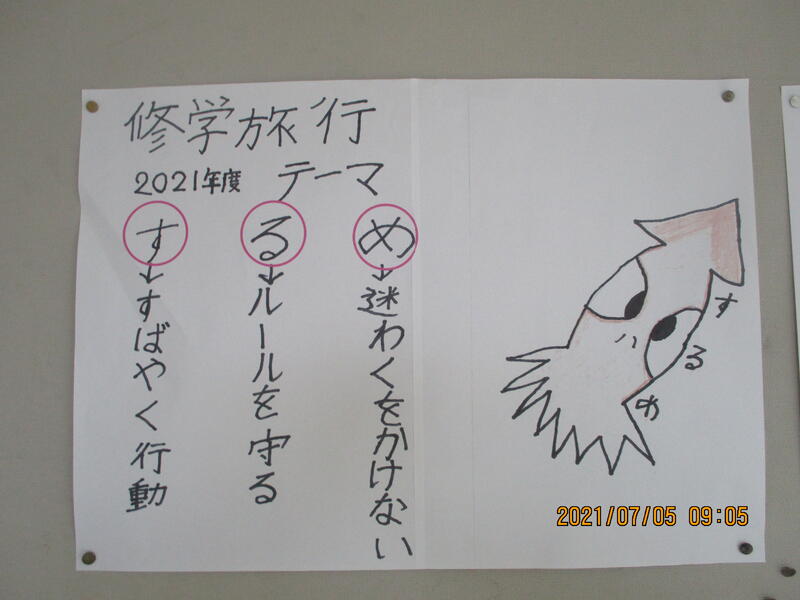 修学旅行
2021年度 テーマ
す→すばやく行動
る→ルールを守る
め→迷わくをかけない
するめ
2021/07/05 09:05